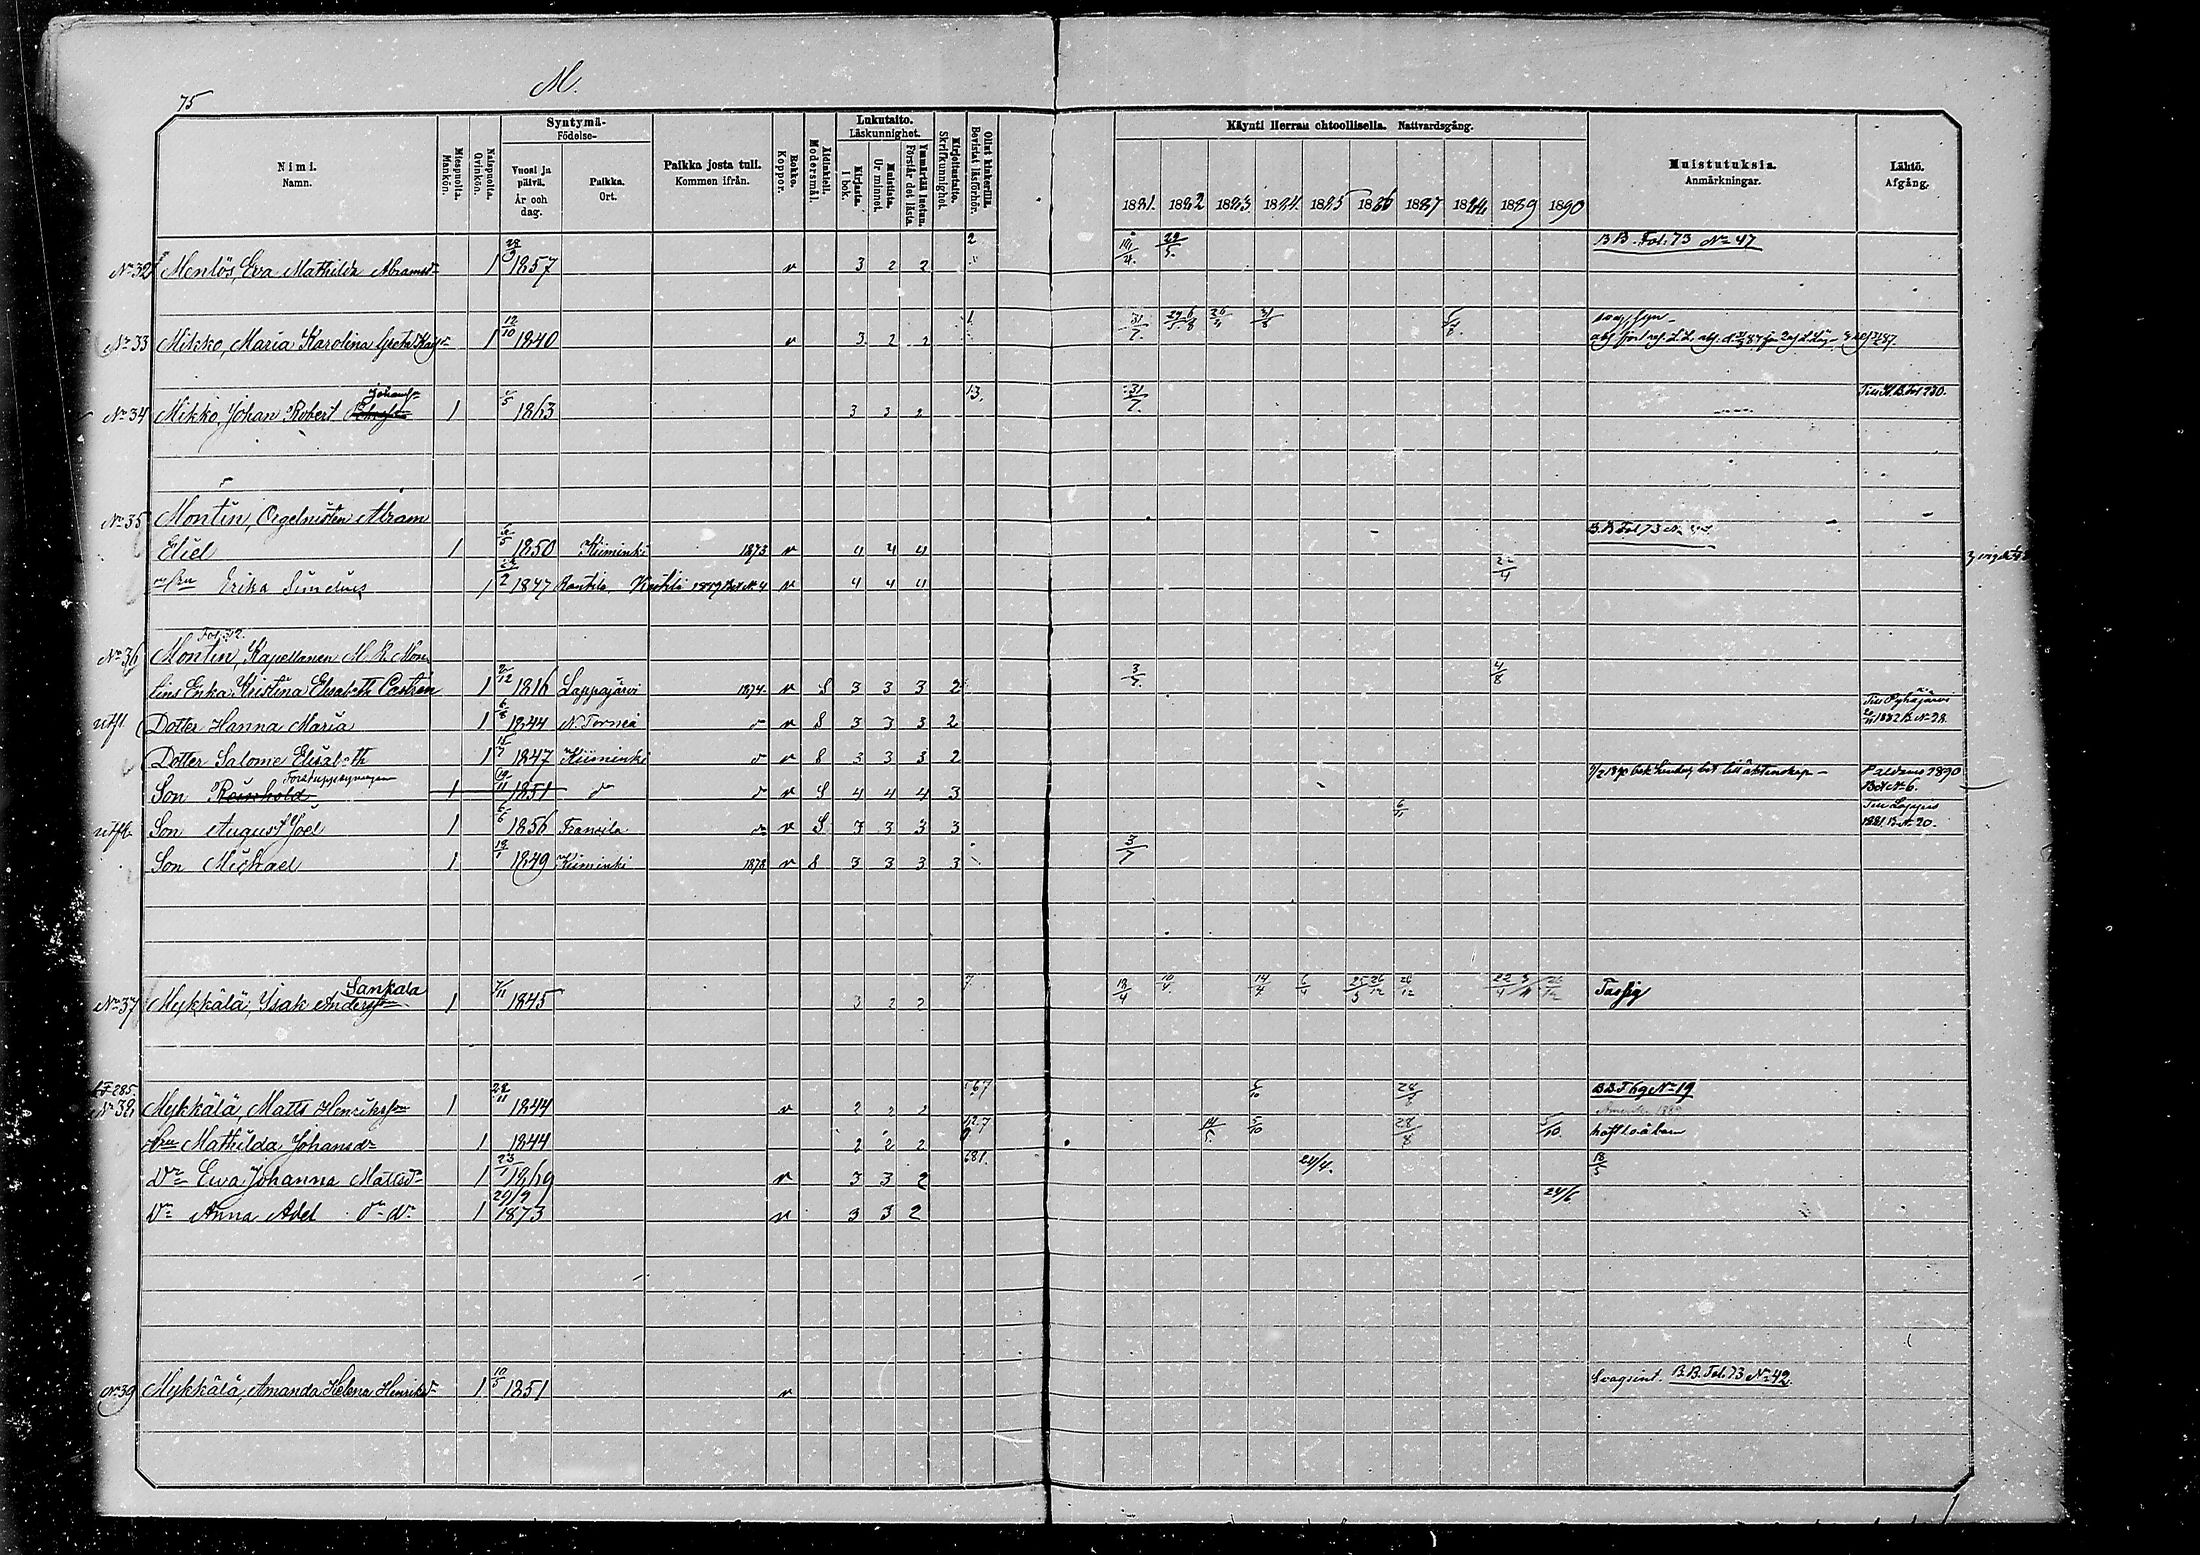 M.
75
Nimi.
Namn.
Miespuolia.
Mankön.
Naispuolia.
Qvinkön.
Syntymä-
Födelse-
Vuosi ja päivä.
År och dag.
Paikka.
Ort.
Paikka josta tuli.
Kommen ifrån.
Rokko.
Koppor.
Äidinkieli.
Modersmål.
Lukutaito.
Läskunnighet.
Kirjasta.
I bok.
Muistista.
Ur minnet.
Ymmärtää luetun.
Förstår det lästa.
Kirjoitustaito.
Skrifkunnighet.
Ollut kinkerillä.
Bevistat läsförhör.
Käynti Herran ehtoollisella. Nattvardsgång.
1881. 1882 1883. 1884. 1885 1886 1887 1888 1889 1890
Muistutuksia.
Anmärkningar.
Lähtö.
Afgång.
No 32 Menlös, Eva Mathilda Abramsdr 1 28/3 1857 v 3 2 2 2 22/5. B B. Fol. 73 No 47
No 33 Mikko, Maria Karolina Greta 1 12/10 1840 v 3 2 2 1. 31/7. 31/8
No 34 Mikko, Johan Robert Johanss 1 1863 3 3 2 13. 31/7. Till N.B. Fol 230.
No 35 Montin, Orgelnisten Abram
Eliel 1 1850 Kiiminki 1873 v 4 4 4 B B Fol 73 No
Erika Sundius 1 1847 Rautila v 4 4 4 22/4
No 36 Montin, Kapellanen M. Z. Mon-
tins Enka Kristina Elisabeth Castrén 1 2/12 1816 Lappajärvi 1874. v S 3 3 3 2 3/7. 4/8
utfl. Dotter Hanna Maria 1 6/8 1844 N. Torneå v S 3 3 3 2 Till Pyhäjärvi 1882 B. No 28.
Dotter Salome Elisabeth 1 1847 Kiiminki v S 3 3 3 2
Son Reinhold Forstuppsyningsm 1 19/11 1851 v S 4 4 4 3 Paldamo 1890 Bet No 6.
utfl. Son August Joel 1 6/6 1856 Frantsila v S 3 3 3 3 6/11 Till Lappis 1881. B No 20.
Son Michael 1 19/1 1849 Kiiminki 1878 v S 3 3 3 3 3/7
No 37 Mykkälä, Isak Anderss Sankala 1 1845 3 2 2 7. 18/4 10/4. 14/4 22/4 Fattig
No 38 Mykkälä, Matts Henriksson 1 28/11 1844 v 2 2 2 67 5/10 28/8 B B. F 69 No 19
Mathilda Johansdr 1 1844 2 2 2 14/5. 5/10 28/8 5/10.
Dr Eva Johanna Mattsdr 1 23/1 1869 v 3 3 2 681. 24/4. 18/5
Dr Anna Abel 1 29/9 1873 v 3 3 2 24/6
No 39 Mykkälä, Amanda Helena Henriksdr 1 10/5 1851 v Svagsint. B B. Fol. 73 No 42.